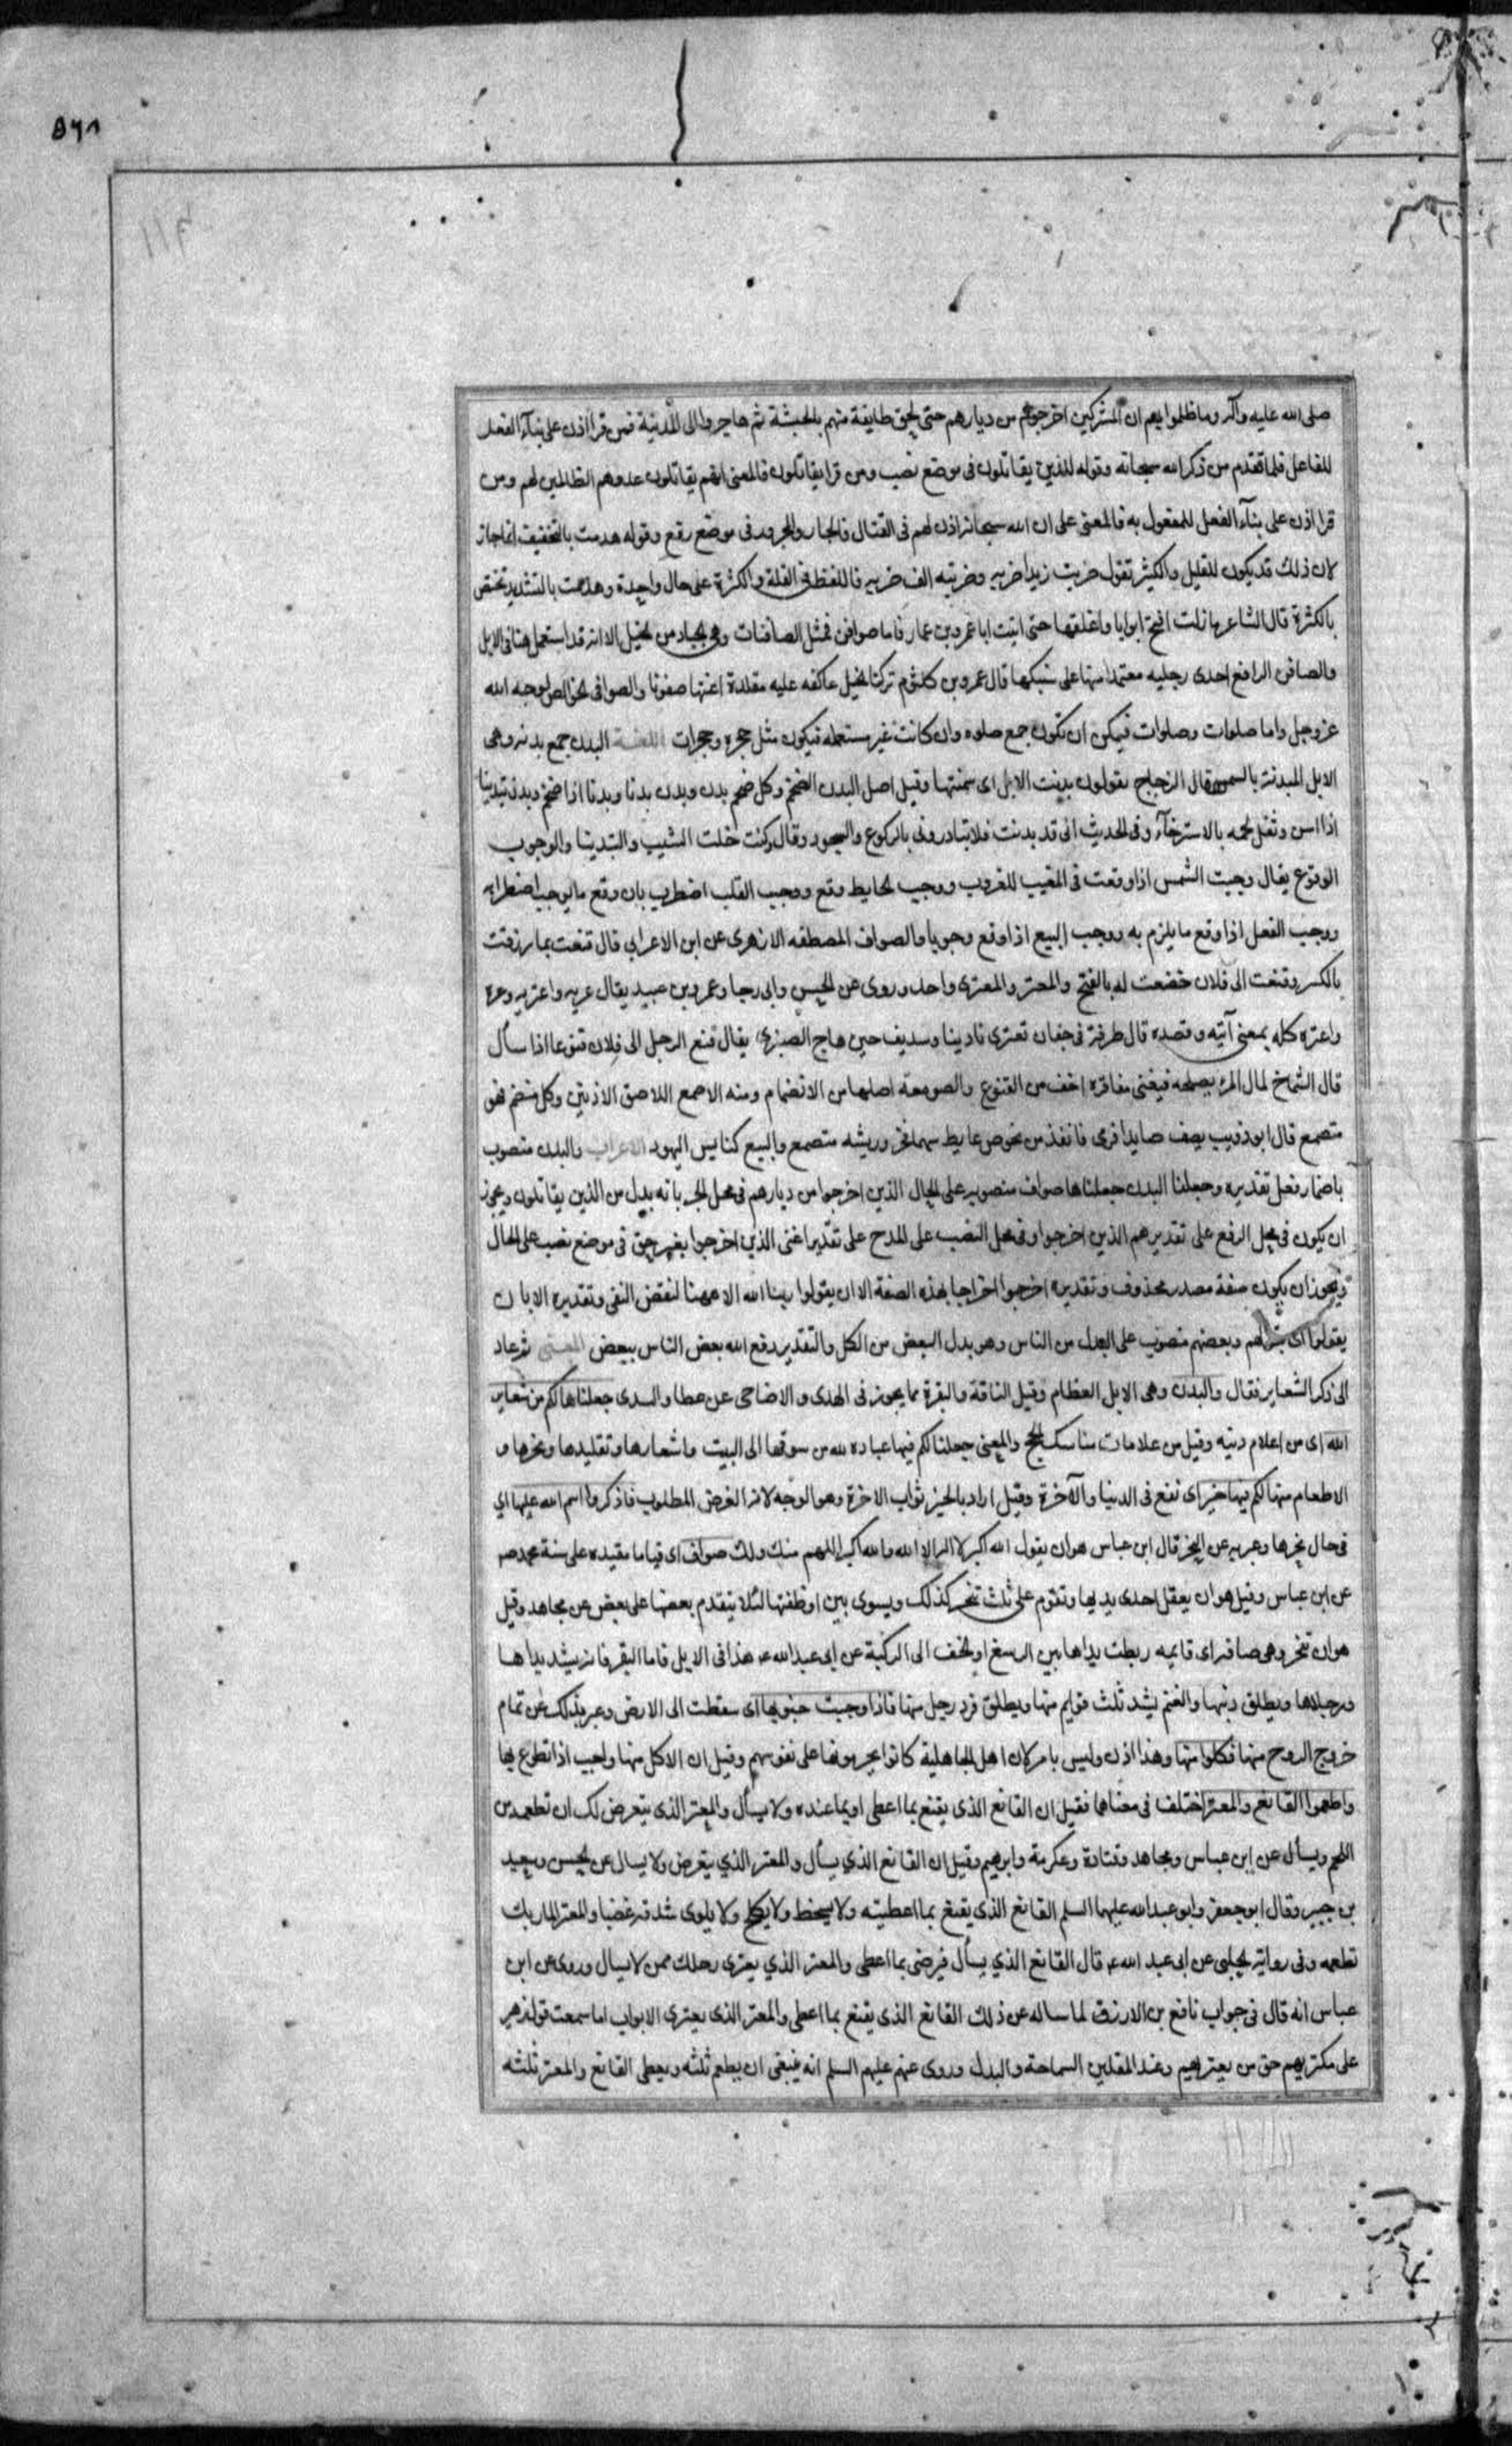 ٥٦٨
صلى الله عليه وآله وما ظلموا به ان المشركين اخرجوهم من ديارهم حتى لحق طايفة منهم بالحبشة ثم هاجروا الى المدينة فمن قرا اذن على بناء الفعل
للفاعل فلما تقدم من ذكر الله سبحانه وقوله للذين يقاتلون فى موضع نصب ومن قرا يقاتلون فالمعنى انهم يقاتلون عدوهم الظالمين لهم ومن
قرا اذن على بناء الفعل للمفعول به فالمعنى على ان الله سبحانه اذن لهم فى القتال فالجار والمجرور فى موضع رفع وقوله هدمت بالتخفيف انما جاز
لان ذلك قد يكون للقليل والكثير تقول ضربت زيدا ضربه وضربته الف ضربه فاللفظ فى القلة والكثرة على حال واحدة وهدمت بالتشديد تختص
بالكثرة قال الشاعر ما زلت افتح ابوابا واغلقها حتى اتيت ابا عمرو بن عمار فاما صوافن فمثل الصافنات وهى الجياد من الخيل الا انه قد استعمل هنا فى الابل
والصافن الرافع احدى رجليه معتمدا منها على سنبكها قال عمرو بن كلثوم تركنا الخيل عاكفه عليه مقلدة اعنتها صفونا والصوافى الخوالص لوجه الله
عز وجل واما صلوات وصلوات فيمكن ان تكون جمع صلوه وان كانت غير مستعمله فيكون مثل حجره وحجرات اللغـة البدن جمع بدنه وهى
الابل المبدنة بالسمن قال الزجاج يقولون بدنت الابل اى سمنتها وقيل اصل البدن الضخم وكل ضخم بدن وبدن بدنا وبدنا اذا ضخم وبدن تبدينا
اذا اسن وثقل لحمه بالاسترخاء وفى الحديث انى قد بدنت فلا تبادرونى بالركوع والسجود وقال وكنت خلت الشيب والتبدينا والوجوب
الوقوع يقال وجبت الشمس اذا وقعت فى المغيب للغروب ووجب الحايط وقع ووجب القلب اضطرب بان وقع ما يوجب اضطرابه
ووجب الفعل اذا وقع ما يلزم به ووجب البيع اذا وقع وجوبا والصواف المصطفه الازهرى عن ابن الاعرابى قال قنعت بما رزقت
بالكسر وقنعت الى فلان خضعت له بالفتح والمعتر والمعترى واحد وروى عن الحسن وابى رجا وعمرو بن عبيد يقال عريه واعتريه وعره
واعتره كله بمعنى آتيه وقصده قال طرفة فى جفان تعترى نادينا وسديف حين هاج الصنبر يقال قنع الرجل الى فلان قنوعا اذا سأل
قال الشماخ لمال المرء يصلحه فيغنى مفاقره اخف من القنوع والصومعة اصلها من الانضمام ومنه الاصمع اللاصق الاذنين وكل منضم فهو
متصمع قال ابو ذويب يصف صايدا فرمى فانفذ من نحوص عايط سهما فخر وريشه متصمع والبيع كنايس اليهود الاعراب والبدن منصوب
باضمار فعل تقديره وجعلنا البدن جعلناها صواف منصوبه على الحال الذين اخرجوا من ديارهم فى محل الجر بانه بدل من الذين يقاتلون ويجوز
ان يكون فى محل الرفع على تقديرهم الذين اخرجوا وفى محل النصب على المدح على تقدير اعنى الذين اخرجوا بغير حق فى موضع نصب على الحال
ويجوز ان يكون صفة مصدر محذوف وتقديره اخرجوا اخراجا بهذه الصفة الا ان يقولوا ربنا الله الا ههنا لنقض النفى وتقديره الا بان
يقولوا اى وبعضهم منصوب على البدل من الناس وهو بدل البعض من الكل والتقدير دفع الله بعض الناس ببعض المعـنى ثم عاد
الى ذكر الشعاير فقال والبدن وهى الابل العظام وقيل الناقة والبقرة مما يجوز فى الهدى والاضاحى عن عطا والسدى جعلناها لكم من شعاير
الله اى من اعلام دينه وقيل من علامات مناسك الحج والمعنى جعلنا لكم فيها عباده لله من سوقها الى البيت واشعارها وتقليدها ونحرها و
الاطعام منها لكم فيها خير اى نفع فى الدنيا والآخرة وقيل اراد بالخير ثواب الاخرة وهو الوجه لانه الغرض المطلوب فاذكروا اسم الله عليها اي
فى حال نحرها وعبر به عن النحر قال ابن عباس هو ان يقول الله اكبر لا اله الا الله والله اكبر اللهم منك ولك صواف اى قياما مقيده على سنة محمد صـ
عن ابن عباس وقيل هو ان يعقل احدى يديها وتقوم على ثلث تنحر كذلك ويسوى بين اوظفتها لئلا يتقدم بعضها على بعض عن مجاهد وقيل
هو ان تنحر وهى صافه اى قايمه ربطت يداها بين الرسغ او الخف الى الركبة عن ابى عبد الله عـ هذا فى الابل فاما البقر فانه يشد يداها
ورجلاها ويطلق ذنبها والغنم يشد ثلث قوايم منها ويطلق فرد رجل منها فاذا وجبت جنوبها اى سقطت الى الارض وعبر بذلك عن تمام
خروج الروح منها فكلوا منها وهذا اذن وليس بامر لان اهل الجاهلية كانوا يحرمونها على نفوسهم وقيل ان الاكل منها واجب اذا تطوع بها
واطعموا القانع والمعتر اختلف فى معناهما فقيل ان القانع الذى يقنع بما اعطى او بما عنده ولا يسأل والمعتر الذى يتعرض لك ان تطعمه من
اللحم ويسأل عن ابن عباس ومجاهد وقتادة وعكرمة وابرهيم وقيل ان القانع الذي يسأل والمعتر الذي يتعرض ولا يسال عن الحسن وسعيد
بن جبير وقال ابو جعفر وابو عبد الله عليهما السلم القانع الذى يقنع بما اعطيته ولا يسخط ولا يكلح ولا يلوى شدقه غضبا والمعتر المار بك
تطعمه وفى رواية الحلبى عن ابى عبد الله عـ قال القانع الذي يسأل فيرضى بما اعطى والمعتر الذي يعترى رحلك ممن لا يسال وروى عن ابن
عباس انه قال فى جواب نافع بن الازرق لما ساله عن ذلك القانع الذى يقنع بما اعطى والمعتر الذى يعترى الابواب اما سمعت قول زهير
على مكثريهم حق من يعتريهم وعند المقلين السماحة والبذل وروى عنهم عليهم السلم انه ينبغى ان يطعم ثلثه ويعطى القانع والمعتر ثلثه